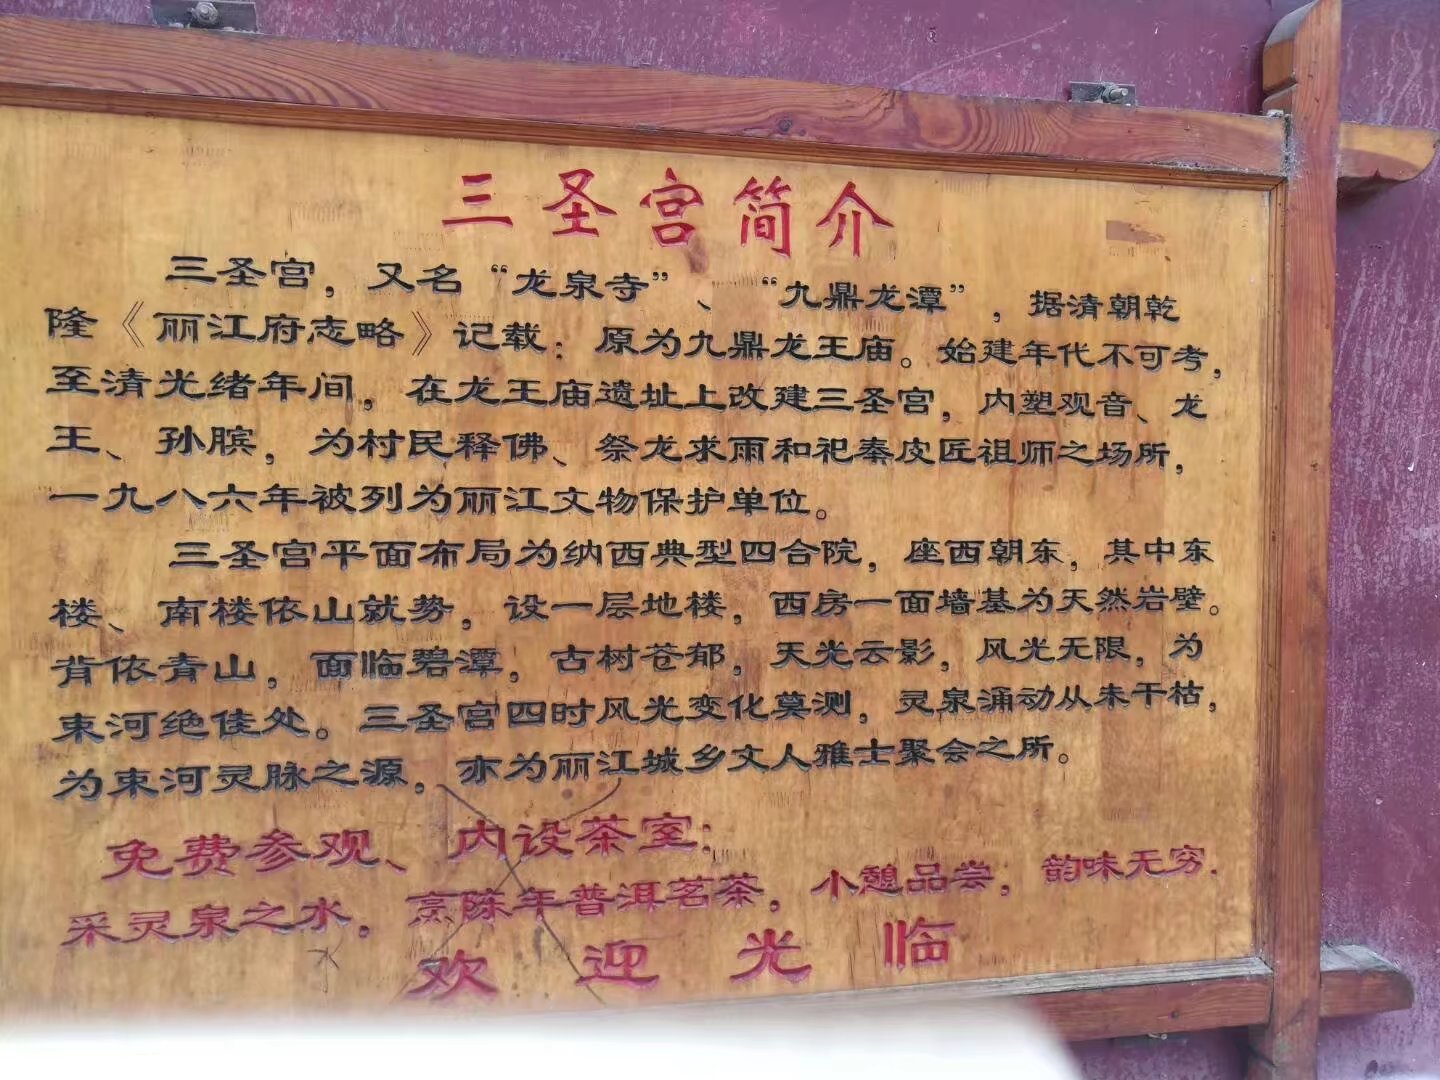 三圣宫简介
三圣宫，又名“龙泉寺”、“九鼎龙潭”，据清朝乾
隆《丽江府志略》记载：原为九鼎龙王庙。始建年代不可考，
至清光绪年间，在龙王庙遗址上改建三圣宫，内塑观音、龙
王、孙膑，为村民释佛、祭龙求雨和祀奉皮匠祖师之场所，
一九八六年被列为丽江文物保护单位。
三圣宫平面布局为纳西典型四合院，座西朝东，其中东
楼、南楼依山就势，设一层地楼，西房一面墙基为天然岩壁。
背依青山，面临碧潭，古树苍郁，天光云影，风光无限，为
束河绝佳处。三圣宫四时风光变化莫测，灵泉涌动从未干枯，
为束河灵脉之源，亦为丽江城乡文人雅士聚会之所。
免费参观、内设茶室：
采灵泉之水，烹陈年普洱茗茶，小憩品尝，韵味无穷．
水
欢迎光临